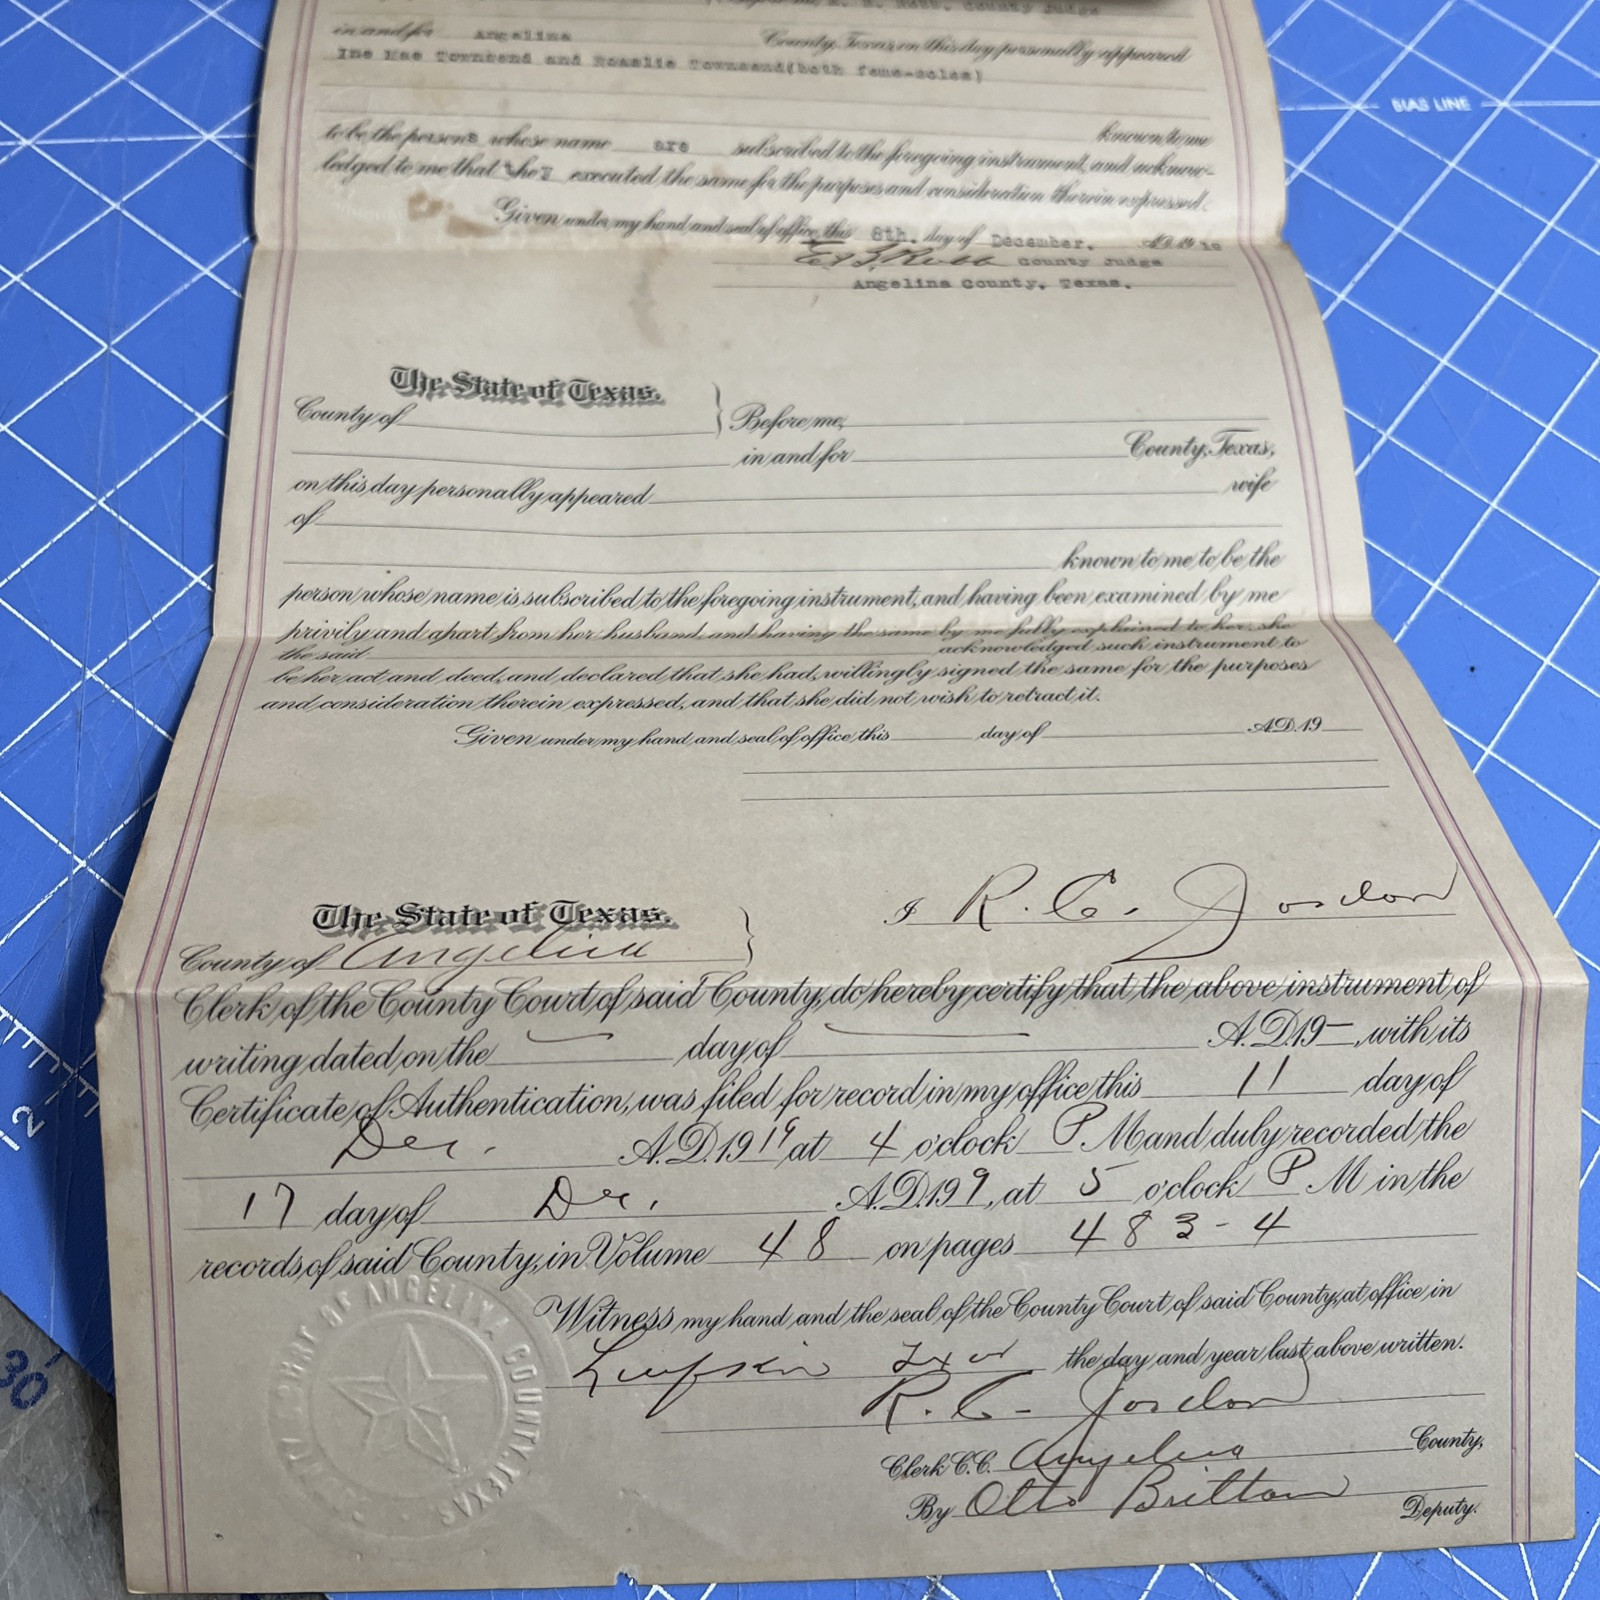 County Judge
in and for Angelina County, Texas on this day personally appeared
Ine Mae Townsend and Rosalie Townsend(both feme-soles)
known to me
to be the persons whose name are subscribed to the foregoing instrument, and acknow-
ledged to me that they executed the same for the purposes and consideration therein expressed.
Given under my hand and seal of office this 8th. day of December. A.D. 19 19
County Judge
Angelina County, Texas.
The State of Texas.
County of } Before me,
in and for County, Texas,
on this day personally appeared wife
of
known to me to be the
person whose name is subscribed to the foregoing instrument, and having been examined by me
privily and apart from her husband and having the same by me fully explained to her, she
the said acknowledged such instrument to
be her act and deed, and declared that she had willingly signed the same for the purposes
and consideration therein expressed, and that she did not wish to retract it.
Given under my hand and seal of office this day of A.D. 19
The State of Texas. } I R. C. Jordon
County of Angelina
Clerk of the County Court of said County, do hereby certify that the above instrument of
writing dated on the — day of — A.D. 19—, with its
Certificate of Authentication, was filed for record in my office this 11 day of
Dec. A.D. 19 19 at 4 o'clock P M and duly recorded the
17 day of Dec. A.D. 19 9, at 5 o'clock P M in the
records of said County, in Volume 48 on pages 483-4
Witness my hand and the seal of the County Court of said County, at office in
Lufkin Texas the day and year last above written.
R. C. Jordon
Clerk C.C. Angelina County,
By Otto Britton Deputy.
COURT OF ANGELINA COUNTY TEXAS
BIAS LINE
2
30